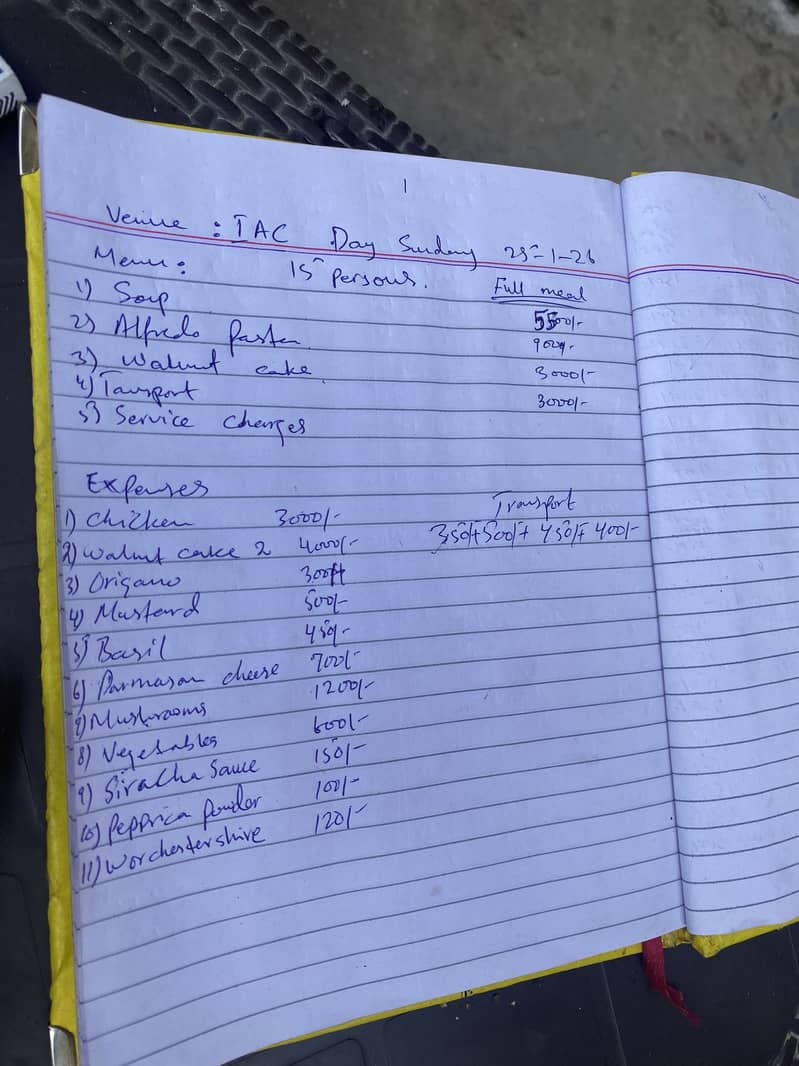 1
Venue : IAC Day Sunday 25-1-26
Menu : 15 persons. Full meal
1) Soup 5500/-
2) Alfredo Pasta
3) Walnut cake 3000/-
4) Tansport 3000/-
5) Service charges
Expenses
Transport
1) Chicken 3000/- 350/+500/+ 450/+ 400/-
2) Walnut cake 2 4000/-
3) Origano 300/-
4) Mustard 500/-
5) Basil 450/-
6) Parmasan cheese 700/-
7) Mushrooms 1200/-
8) Vegetables 600/-
9) Siracha Sauce 150/-
10) Papprica Powder 100/-
11) Worchestershire 120/-